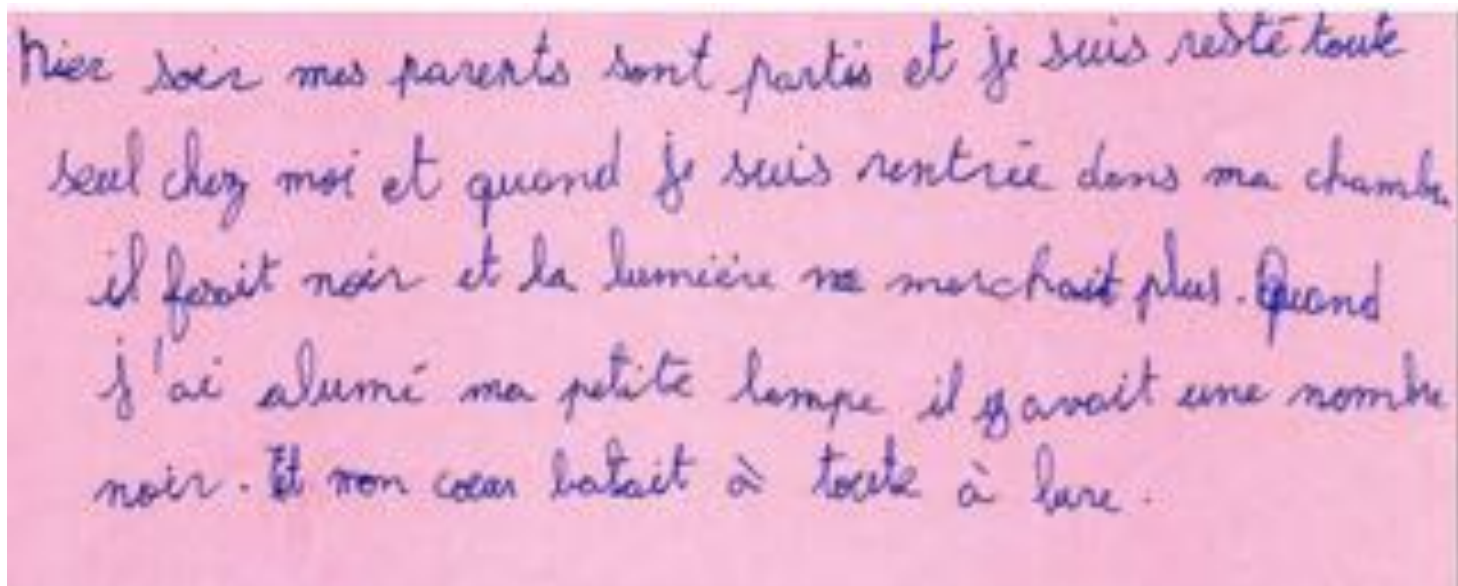 hier soir mes parents sont partis et je suis resté toute
seul chez moi et quand je suis rentrée dans ma chambre
il fesait noir et la lumière ne marchait plus. Quand
j'ai alumé ma petite lampe il y avait une nombre
noir. Et mon coeur batait à toute à lure.